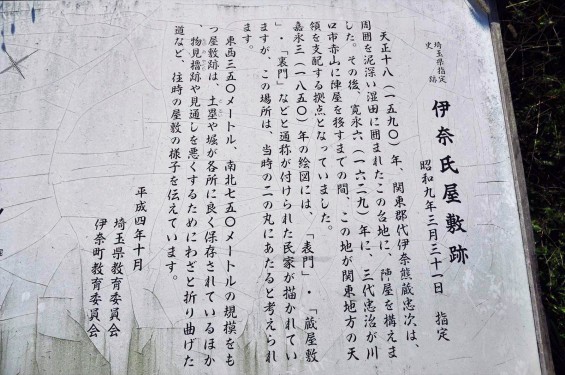 埼玉県指定
史跡
伊奈氏屋敷跡
昭和九年三月三十一日 指定
天正十八(一五九〇)年、関東郡代伊奈熊蔵忠次は、
周囲を泥深い湿田に囲まれたこの台地に、陣屋を構えま
した。その後、寛永六(一六二九)年に、三代忠治が川
口市赤山に陣屋を移すまでの間、この地が関東地方の天
領を支配する拠点となっていました。
嘉永三(一八五〇)年の絵図には、「表門」・「蔵屋敷
」・「裏門」などと通称が付けられた民家が描かれてい
ますが、この場所は、当時の二の丸にあたると考えられ
ます。
東西三五〇メートル、南北七五〇メートルの規模をも
つ屋敷跡は、土塁や堀が各所に良く保存されているほか
、物見櫓跡や見通しを悪くするためにわざと折り曲げた
道など、往時の屋敷の様子を伝えています。
平成四年十月
埼玉県教育委員会
伊奈町教育委員会